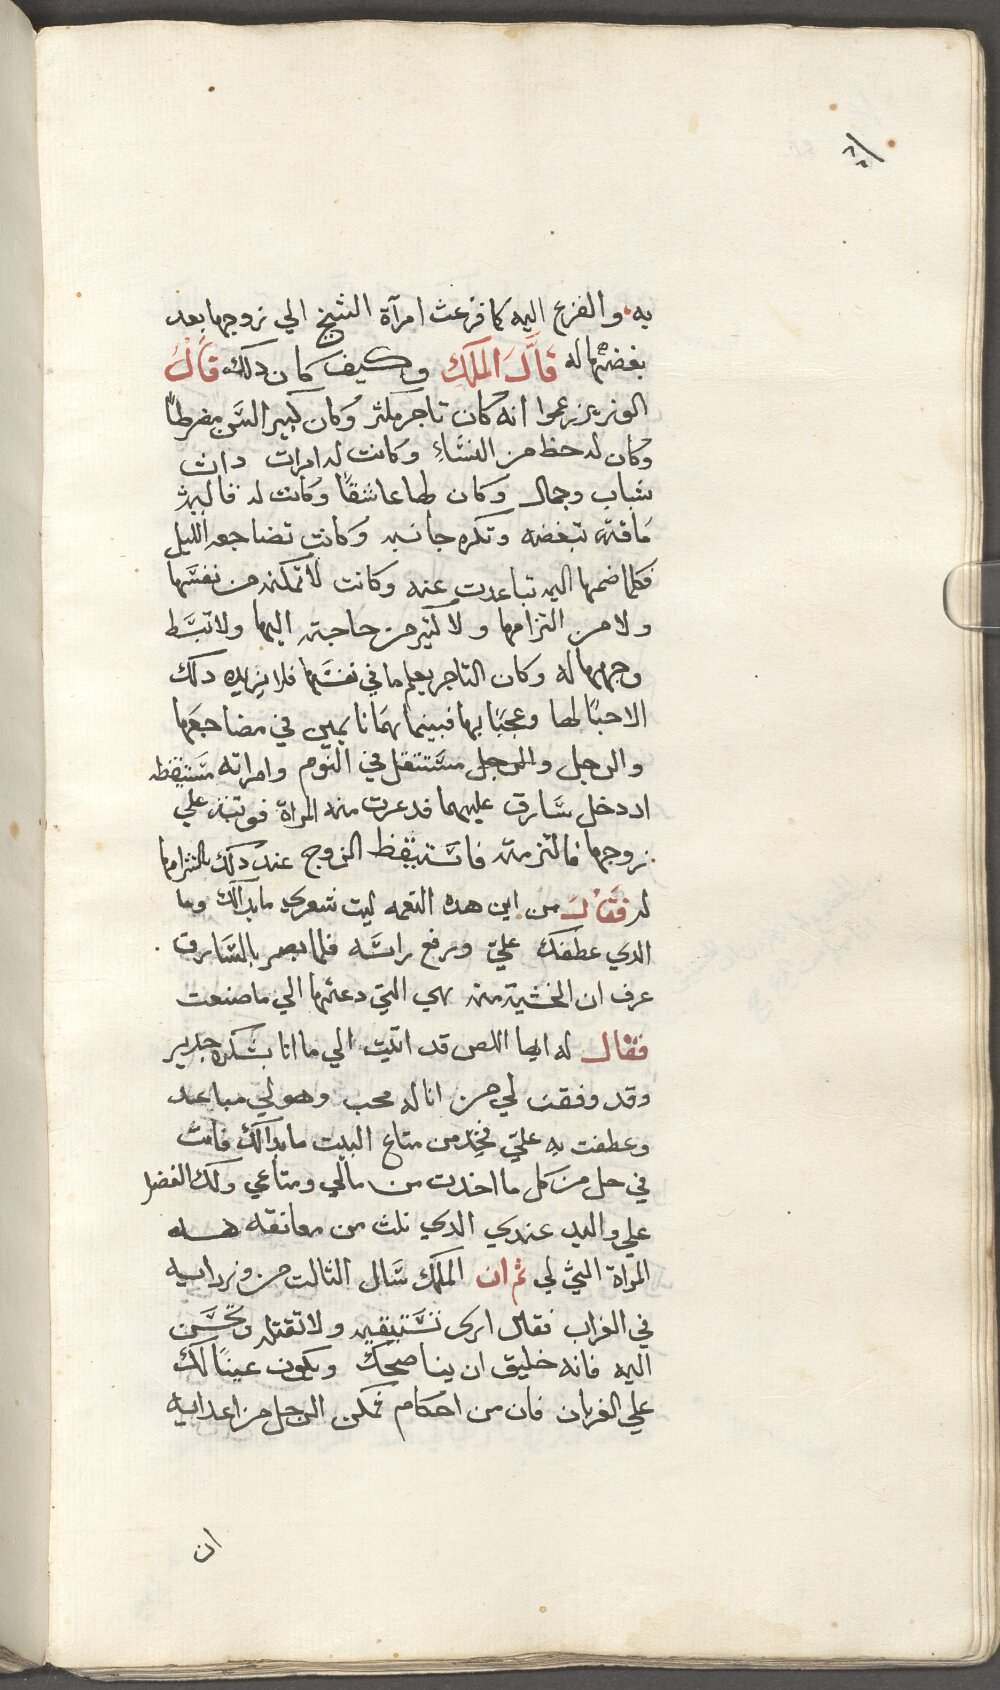 به والفزع اليه كما فزعت امرآة الشيخ الي زوجها بعد
بغضتها له قال الملك وكيف كان دلك قال
الوزير زعموا انه كان تاجر مكثر وكان كبير السن مفرطا
وكان له حظ من النساء وكانت له امرات دات
شباب وجمال وكان لها عاشقا وكانت له قاليه
ماقته تبغضه وتكره جانبه وكانت تضاجعه الليل
فكلما ضمها اليه تباعدت عنه وكانت لا تمكنه من نفسها
ولا من التزامها ولا كثير من حاجته اليها ولا تبسط
وجهها له وكان التاجر يعلم ما في نفسها فلا يزيده دلك
الا حبا لها وعجبا بها فبينما هما نايمين في مضاجعها
والرجل والرجل مستثقل في النوم وامراته مستيقظه
اد دخل سارق عليهما فدعرت منه المراة فوتبت علي
زوجها فالتزمته فاستيقظ الزوج عند دلك بالتزامها
له فقال من اين هده النعمه ليت شعري ما بدالك وما
الدي عطفك علي ورفع راسه فلما بصر بالسارق
عرف ان الخشية منه هي التي دعتها الي ما صنعت
فقال له ايها اللص قد اتيت الي ما انا بشكره جدير
وقد وفقت لي من انا له محب وهو لي مباعد
وعطفت به علي فخد من متاع البيت ما بدالك فانت
في حل من كل ما اخدت من مالي ومتاعي ولك الفضل
علي واليد عندي الدي نلت من معانقه هده
المراة التي لي ثم ان الملك سال الثالت من وزرايه
في الغراب فقال ارى تستبقيه ولا تقتله وتحسن
اليه فانه خليق ان يناصحك ويكون عينا لك
علي الغربان فان من احكام تمكن الرجل من اعدايه
ان